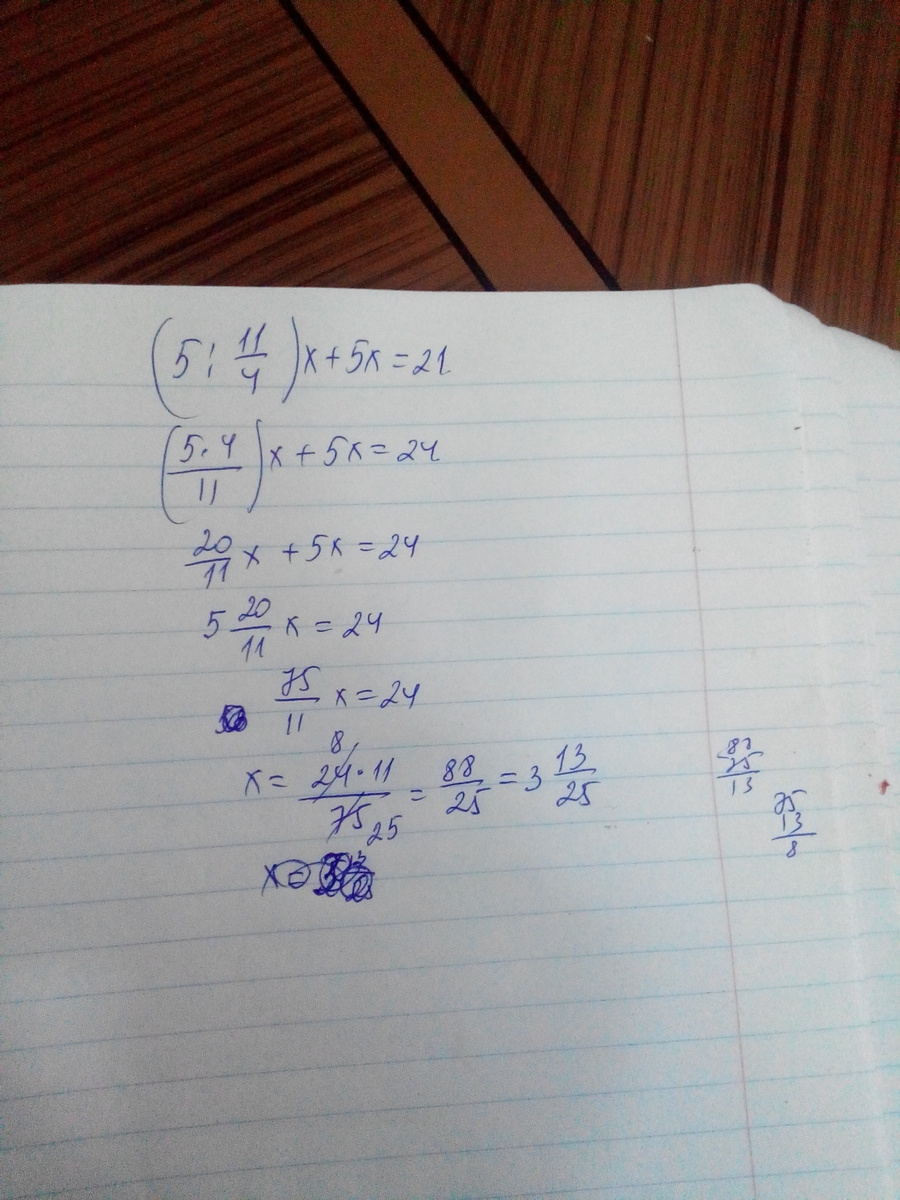 (5 : 11/4)x + 5x = 21
(5·4/11)x + 5x = 24
20/11 x + 5x = 24
5 20/11 x = 24
75/11 x = 24
8
x = 24·11/75 25 = 88/25 = 3 13/25
88
75
13
75
13
8
x =